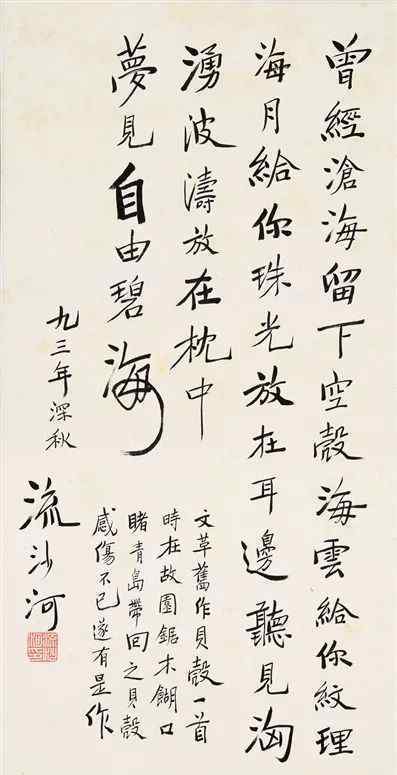 曾經滄海留下空殼海雲給你紋理
海月給你珠光放在耳邊聽見洶
湧波濤放在枕中
夢見自由碧海
文草舊作貝殼一首
時在故園鋸木餬口
睹青島帶回之貝殼
感傷不已遂有是作
九三年深秋
流沙河